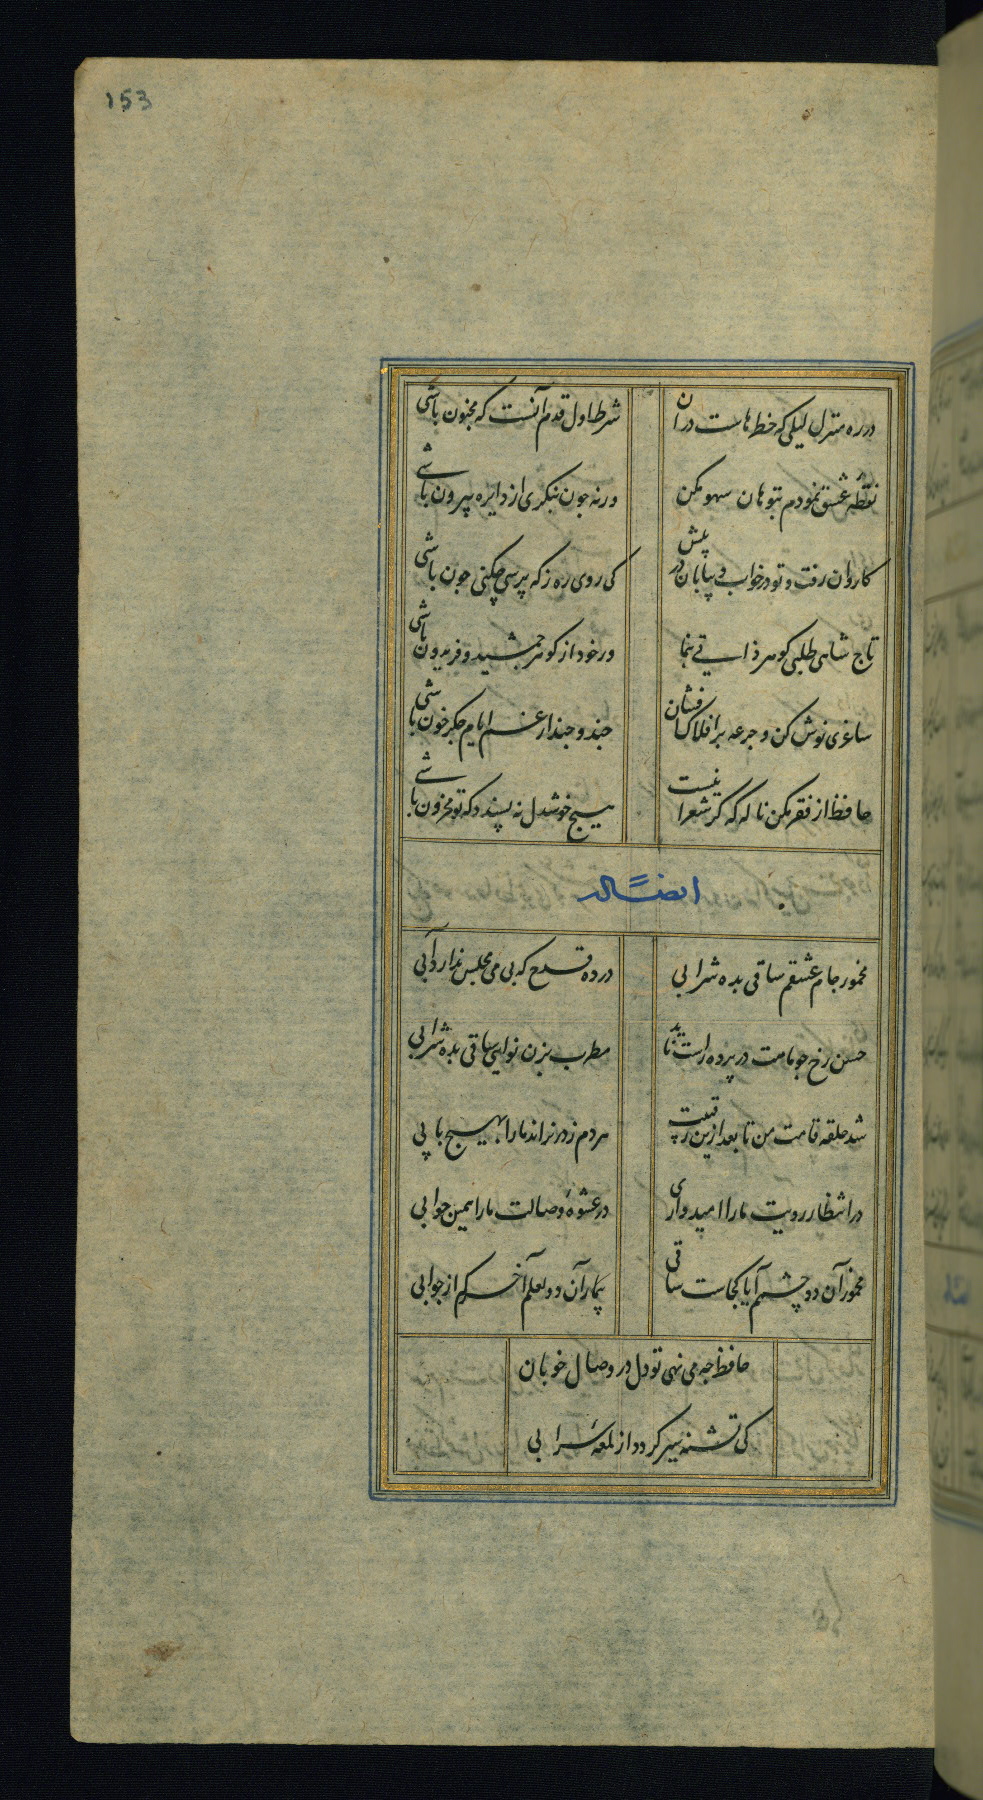 153
در ره منزل لیلی که خطرهاست در آن شرط اول قدم آنست که مجنون باشی
نقطه عشق نمودم بتو هان سهو مکن ورنه چون بنکری از دایره بیرون باشی
کاروان رفت و تو در خواب و بیابان در پیش کی روی ره ز که پرسی چکنی چون باشی
تاج شاهی طلبی کوهر ذاتی بنما ور خود از کوهر جمشید و فریدون باشی
ساغری نوش کن و جرعه بر افلاک فشان چند و چند از غم ایام جکر خون باشی
حافظ از فقر مکن ناله که کر شعر اینست هیچ خوشدل نه پسندد که تو محزون باشی
ایضاً له
مخمور جام عشقم ساقی بده شرابی در ده قدح که بی می مجلس ندارد آبی
حسن رخ چو ماهت در پرده راست ناید مطرب بزن نوایی ساقی بده شرابی
شد حلقه قامت من تا بعد ازین رقیبت هر دم ز در نراند ما را بهیچ بابی
در انتظار رویت ما را امیدواری در عشوه وصالت ما را همین جوابی
مخمور آن دو چشم آیا کجاست ساقی بیمار آن دو لعلم آخر کم از جوابی
حافظ چه می نهی تو دل در وصال خوبان
کی تشنه سیر کردد از لمعه سرابی